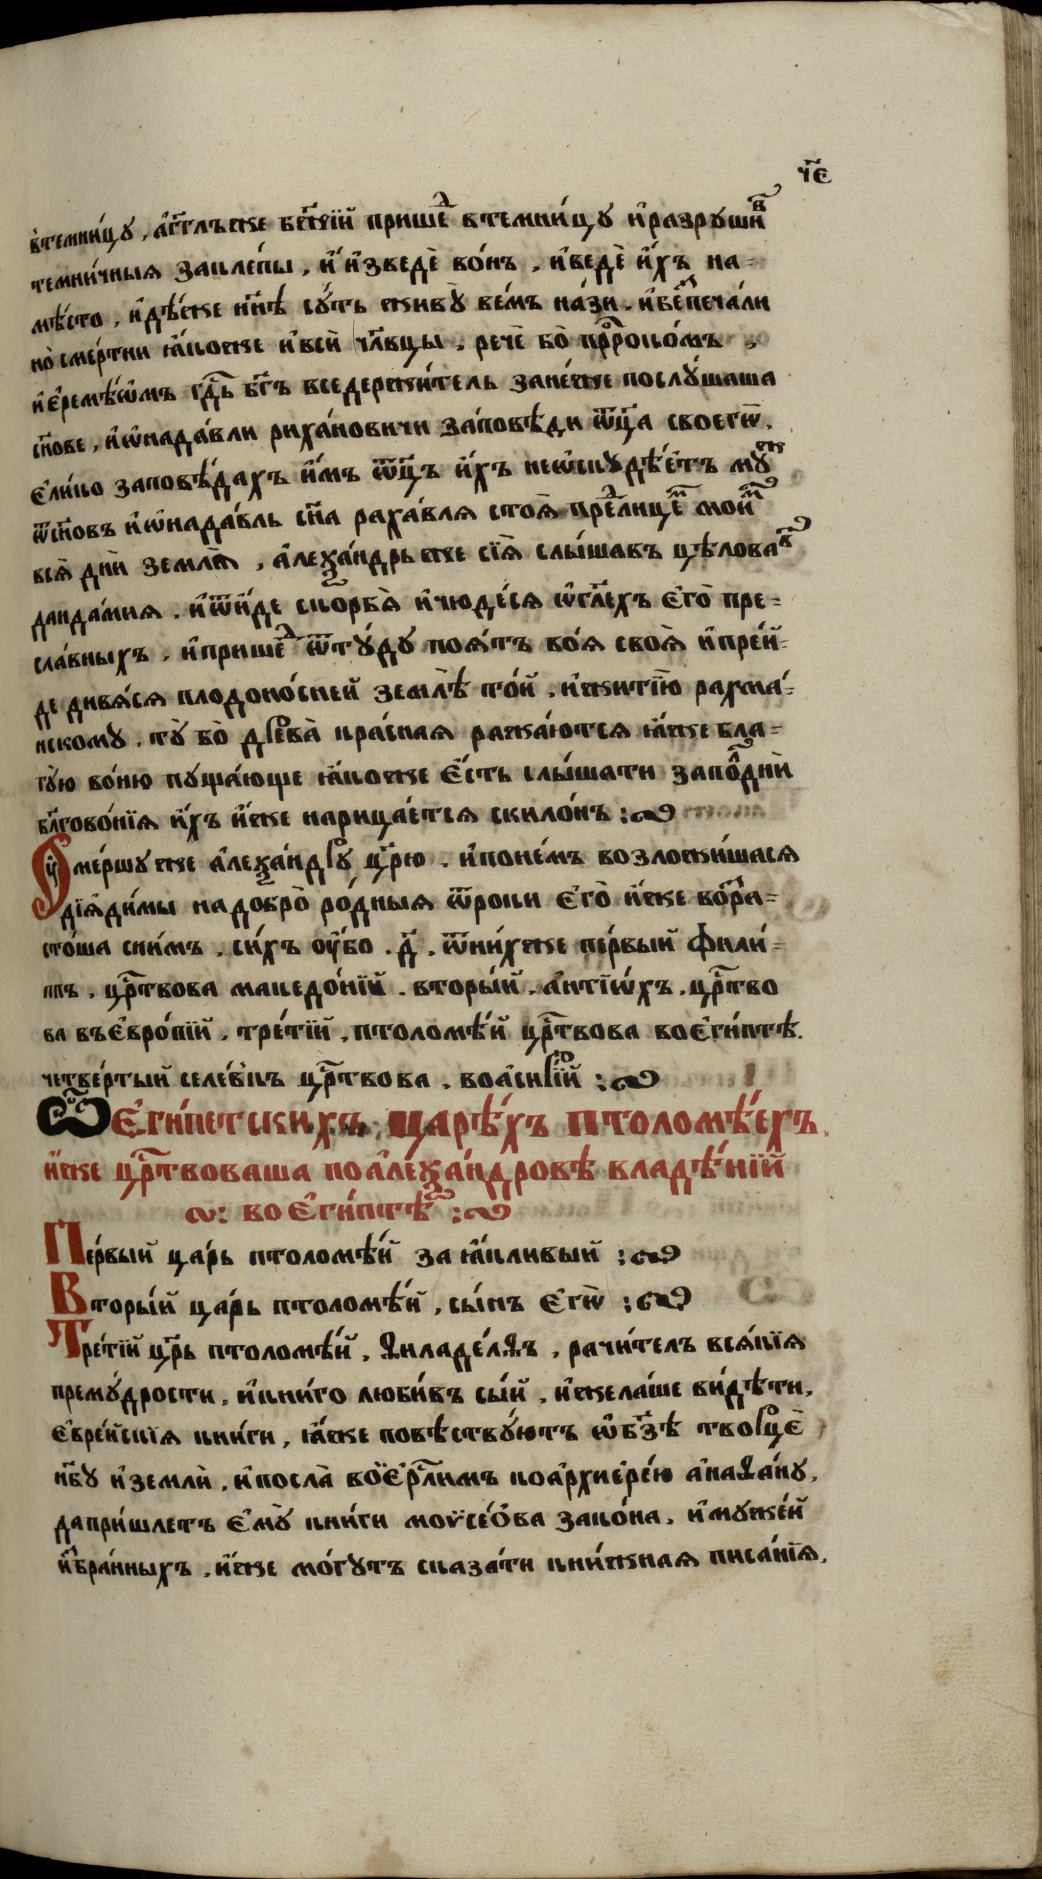 ч҃е
в̾темни́цу, а҆́гг҃лъже бж҃їй прише́ⷣ в темни́цу и҆разруши́ⷡ
темни́чныѧ заклепы̀, и҆ и҆зведѐ во́нъ, и҆ведѐ и҆́хъ на=
мѣ́сто, и҆дѣ́же нн҃ѣ су́ть живу̀ вемъ на́зи, и҆беⷥпеча́ли
но̀ сме́ртни ꙗ҆́коже и҆всѝ чл҃вцы, речѐ бо̀ прⷪ҇ро́комъ,
и҆є҆ремѣ́ѡмъ гд҇ь бг҃ъ вседержи́тель зане́же послу́шаша
сн҃ове, и҆ѡ҆нада́вли риха́новичи за́повѣди ѿц҃а своегѡ̀,
є҆ли́ко заповѣ́дахъ и҆̀мъ ѿц҃ъ и҆́хъ неѡ҆скудѣ́етъ му́ⷤ
ѿсн҃овъ и҆ѡ҆нада́вль сн҃а раха́влѧ стоѧ̀ преⷣлице́ⷨ мои́ⷨ
всѧ̀ дн҃и землѧ̀, а҆леѯа́ндръже сїѧ̀ слы́шавъ цѣлова́ⷡ
данда́мнѧ, и҆ѿи́де скорбѧ̀ и҆чюде́сѧ ѡ҆гл҃ехъ є҆гѡ̀ пре=
сла́вныхъ, и҆прише́ⷣ ѿту́ду поѧ́тъ во́ѧ своѧ̀ и҆пре́й=
де дивѧ́сѧ плодоно́сней землѣ̀ то́й, и҆житїю̀ рахма́=
нскому, ту̀ бо̀ древа̀ кра́снаѧ ража́ютсѧ ꙗ҆́же бла=
гу́ю во́ню пуща́юще ꙗ҆́коже є҆́сть слы́шати запоⷧднѝ
бл҃гово́нїѧ и҆́хъ и҆́же нарица́етсѧ скило́нъ :~
Ꙋ҆ме́ршуже а҆леѯа́ндру цр҃ю, и҆поне́мъ возложи́шасѧ
дїѧди́мы надобрѡ̀ ро́дныѧ ѿроки є҆гѡ̀ и҆́же воⷥра=
сто́ша сни́мъ, си́хъ ѹ҆́бо. д҃. ѿни́хже пе́рвый фили=
ппъ, црⷭ҇твова македо́нїи. вторы́й, а҆нтїѡ́хъ, црⷭ҇тво
ва въє҆вро́пїи, тре́тїй, птоломѣ́й црⷭ҇твова воє҆ги́птѣ.
четве́ртый селе́вкъ црⷭ҇твова, воа҆сирїй :~
Ѡ҆ є҆ги́петскихъ царѣ́хъ птоломѣ́ехъ,
и҆́же црⷭ҇твоваша поа҆леѯа́ндровѣ владѣ́нїи
~: во є҆ги́птѣ :~
Пе́рвый ца́рь птоломѣ́й за ꙗ҆́кливый :~
Вторы́й ца́рь птоломѣ́й, сы́нъ є҆гѡ̀ :~
Тре́тїй цр҃ь птоломѣ́й, ѳиладе́лѳъ, рачи́телъ всѧ́кїѧ
прему́дрости, и҆кни́го люби́въ сы́й, и҆жела́ше ви́дѣти,
є҆вре́йскїѧ кни́ги, ꙗ҆́же повѣству́ютъ ѡ҆бз҃ѣ творцѐ
нб҃у и҆ землѝ, и҆посла̀ воі҆єрⷭ҇ли́мъ коа҆рхиере́ю а҆наѳа́ну,
да при́шлетъ є҆му̀ кни́ги моѵсе́ѡва зако́на, и҆муже́й
и҆ⷥбра́нныхъ, и҆́же мо́гутъ сказа́ти кни́жнаѧ писа́нїѧ,